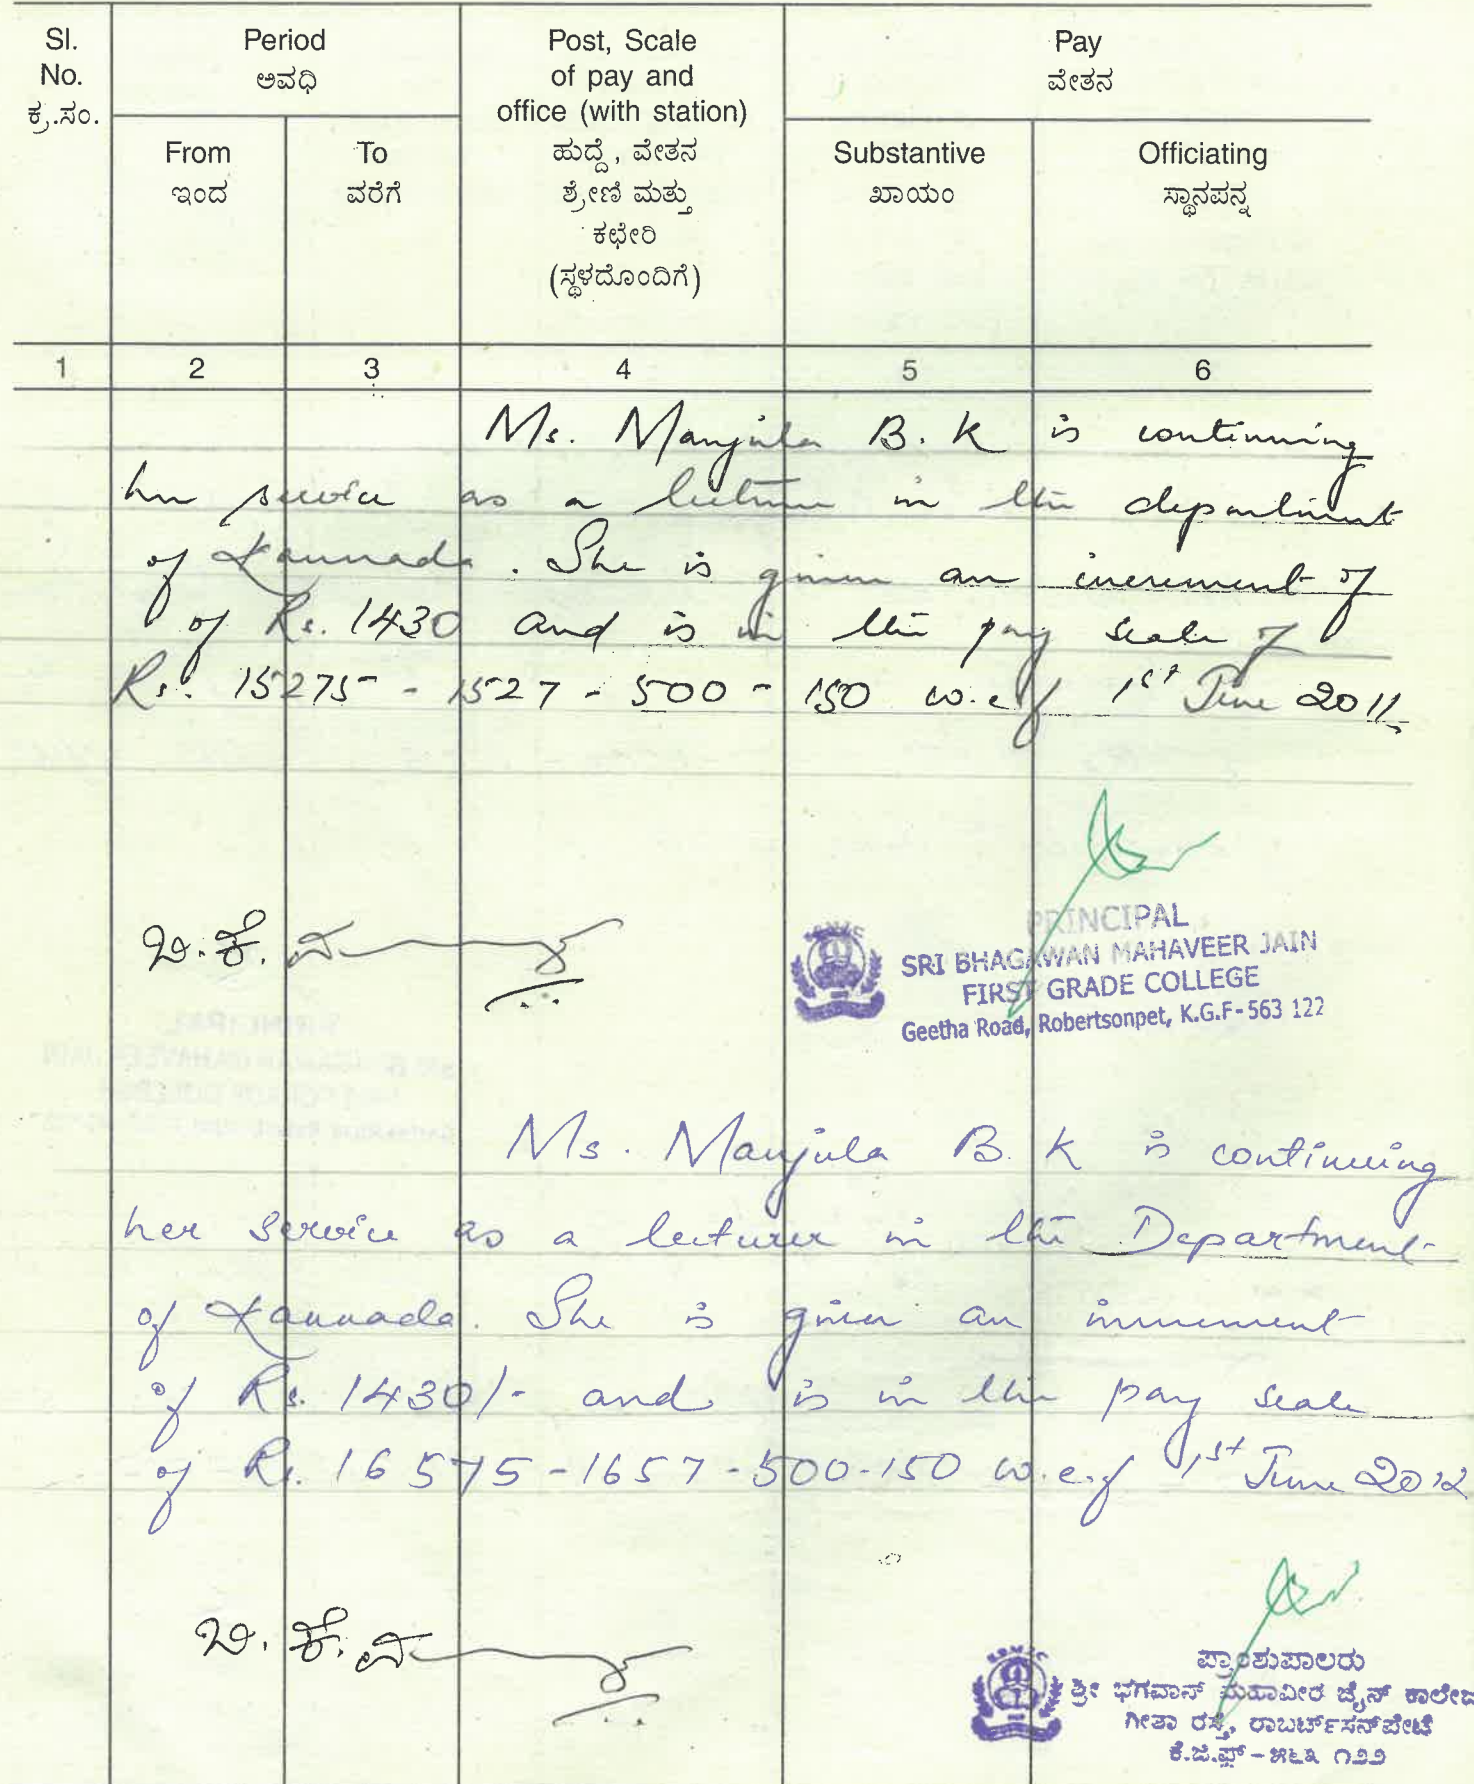 Sl. No. ಕ್ರ.ಸಂ.
Period
ಅವಧಿ
From
ಇಂದ
To
ವರೆಗೆ
Post, Scale
of pay and
office (with station)
ಹುದ್ದೆ, ವೇತನ
ಶ್ರೇಣಿ ಮತ್ತು
ಕಛೇರಿ
(ಸ್ಥಳದೊಂದಿಗೆ)
Pay
ವೇತನ
Substantive
ಖಾಯಂ
Officiating
ಸ್ಥಾನಪನ್ನ
1 2 3 4 5 6
Ms. Manjula B. K is continuing
her service as a lecturer in the department
of Kannada. She is given an increment of
of Rs. 1430 and is in the pay scale of
Rs. 15275 - 1527 - 500 - 150 w.e.f 1st June 2011
ಬಿ.ಕೆ.
PRINCIPAL
SRI BHAGAWAN MAHAVEER JAIN
FIRST GRADE COLLEGE
Geetha Road, Robertsonpet, K.G.F-563 122
Ms. Manjula B. K is continuing
her service as a lecturer in the Department
of Kannada. She is given an increment
of Rs. 1430/- and is in the pay scale
of Rs. 16575-1657-500-150 w.e.f 1st June 2012
ಬಿ. ಕೆ.
ಪ್ರಾಂಶುಪಾಲರು
ಶ್ರೀ ಭಗವಾನ್ ಮಹಾವೀರ ಜೈನ್ ಕಾಲೇಜು
ಗೀತಾ ರಸ್ತೆ, ರಾಬರ್ಟ್‌ಸನ್‌ಪೇಟೆ
ಕೆ.ಜಿ.ಎಫ್ - ೫೬೩ ೧೨೨